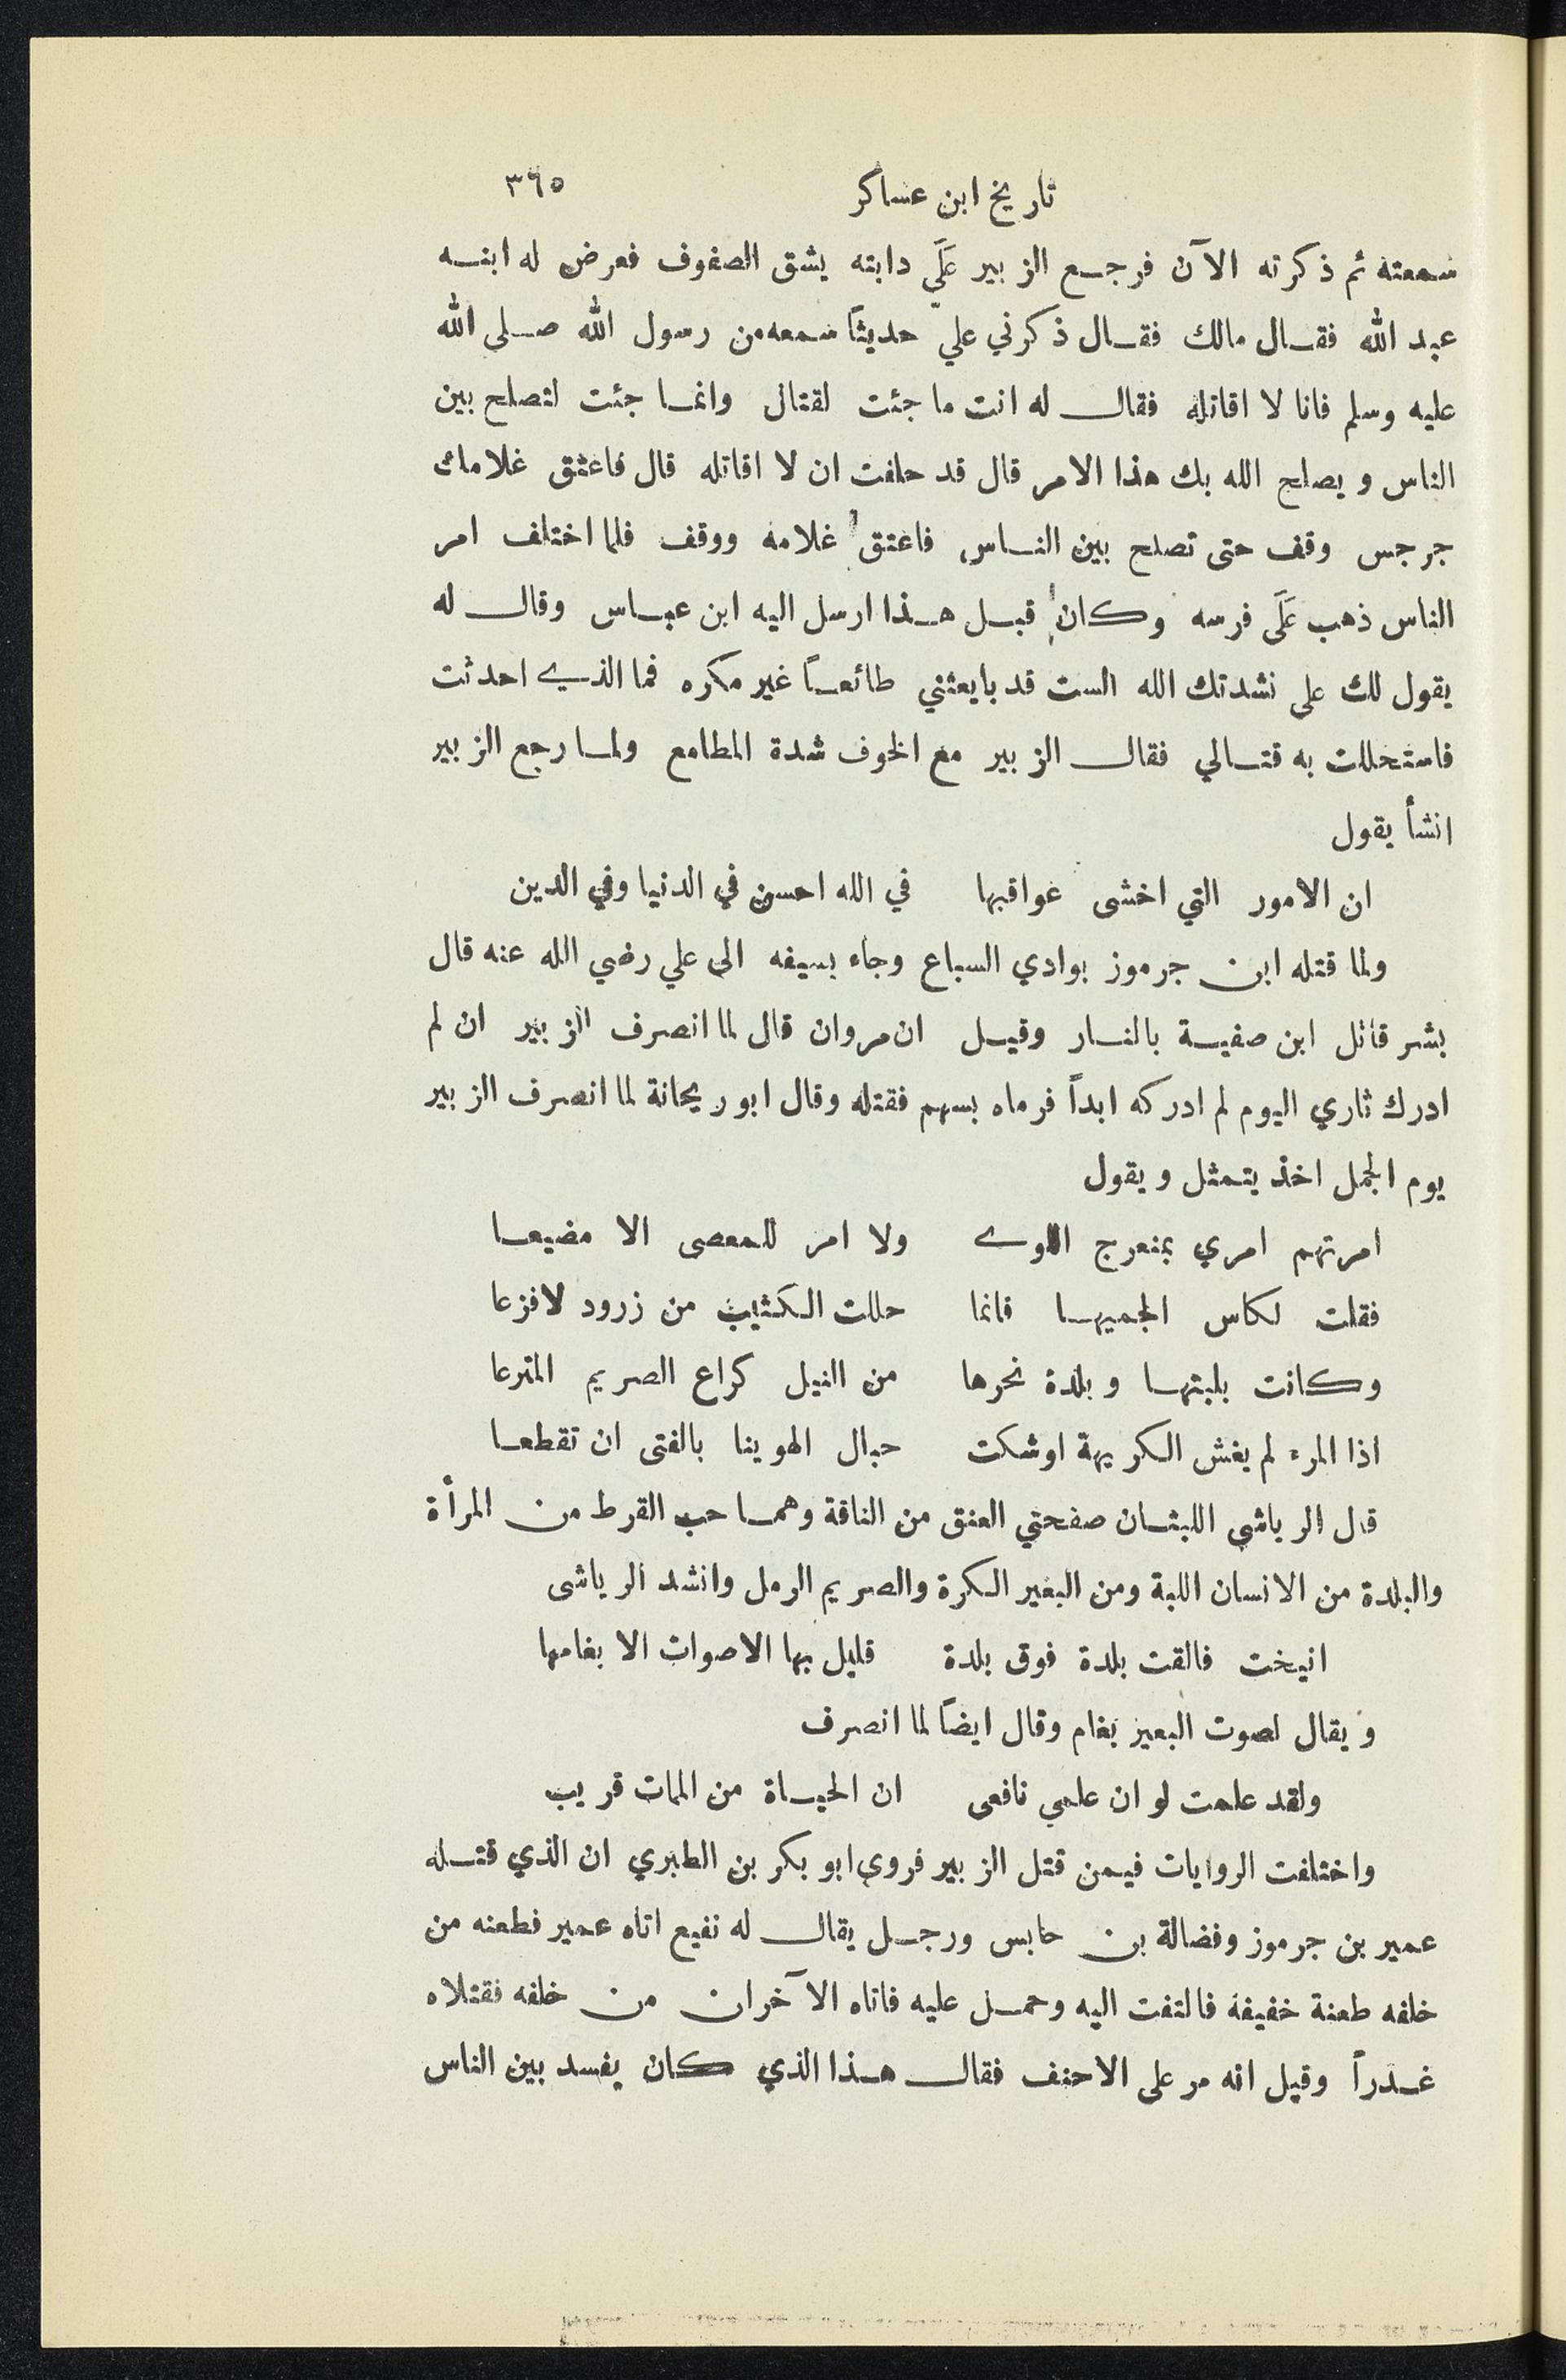 تاريخ ابن عساكر ٣٦٥
سمعته ثم ذكرته الآن فرجع الزبير عَلَى دابته يشق الصفوف فعرض له ابنه
عبد الله فقال مالك فقال ذكرني عليّ حديثاً سمعه من رسول الله صلى الله
عليه وسلم فانا لا اقاتله فقال له انت ما جئت لقتال وانما جئت لتصلح بين
الناس ويصلح الله بك هذا الامر قال قد حلفت ان لا اقاتله قال فاعتق غلامك
جرجس وقف حتى تصلح بين الناس فاعتق غلامه ووقف فلما اختلف امر
الناس ذهب عَلَى فرسه وكان قبل هذا ارسل اليه ابن عباس وقال له
يقول لك على نشدتك الله الست قد بايعتني طائعاً غير مكره فما الذي احدثت
فاستحللت به قتالي فقال الزبير مع الخوف شدة المطامع ولما رجع الزبير
انشأ يقول
ان الامور التي اخشى عواقبها في الله احسن في الدنيا وفي الدين
ولما قتله ابن جرموز بوادي السباع وجاء بسيفه الى علي رضي الله عنه قال
بشر قاتل ابن صفية بالنار وقيل ان مروان قال لما انصرف الزبير ان لم
ادرك ثاري اليوم لم ادركه ابداً فرماه بسهم فقتله وقال ابو ريحانة لما انصرف الزبير
يوم الجمل اخذ يتمثل ويقول
امرتهم امري بمنعرج اللوے ولا امر للمعصى الا مضيعا
فقلت لكاس الجميها فانما حللت الكثيب من زرود لافزعا
وكانت بلبتها وبلدة نحرها من النيل كراع الصريم المترعا
اذا المرء لم يغش الكريهة اوشكت حبال الهوينا بالفتى ان تقطعا
قال الرياشى اللبثان صفحتي العنق من الناقة وهما حب القرط من المرأة
والبلدة من الانسان اللبة ومن البعير الكرة والصريم الرمل وانشد الرياشى
انيخت فالقت بلدة فوق بلدة قليل بها الاصوات الا بغامها
ويقال لصوت البعير بغام وقال ايضاً لما انصرف
ولقد علمت لو ان علمي نافعى ان الحياة من الممات قريب
واختلفت الروايات فيمن قتل الزبير فروى ابو بكر بن الطبري ان الذي قتله
عمير بن جرموز وفضالة بن حابس ورجل يقال له نفيع اتاه عمير فطعنه من
خلفه طعنة خفيفة فالتفت اليه وحمل عليه فاتاه الآخران من خلفه فقتلاه
غدراً وقيل انه مر على الاحنف فقال هذا الذي كان يفسد بين الناس